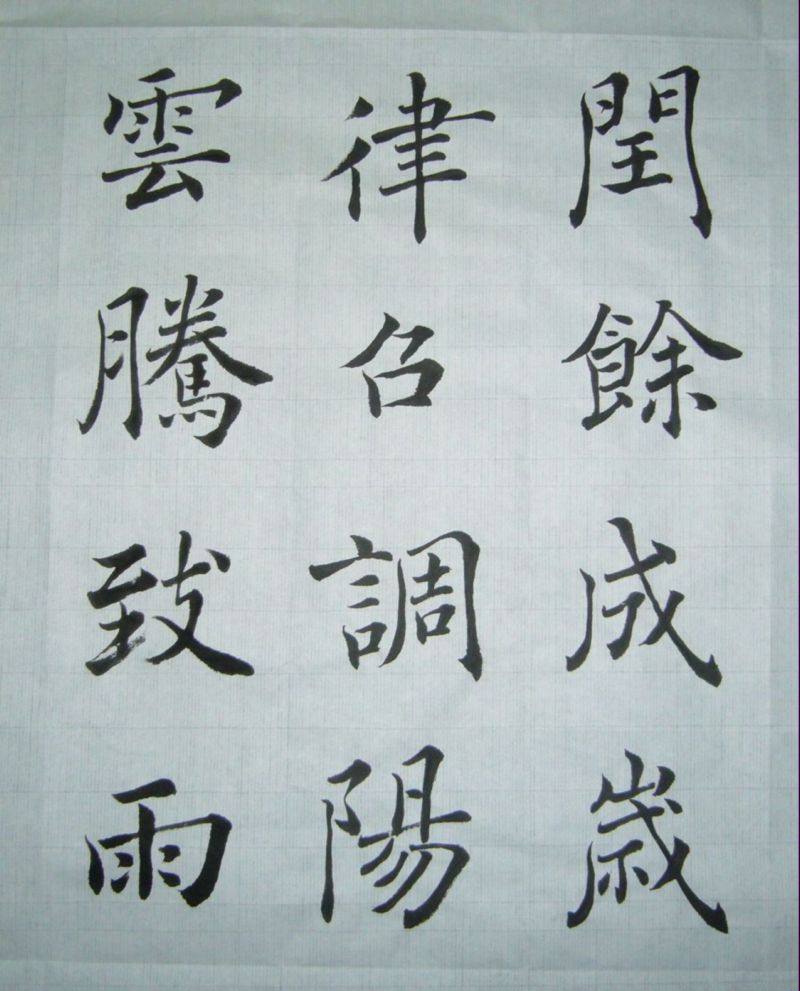 閏餘成歲
律召調陽
雲騰致雨